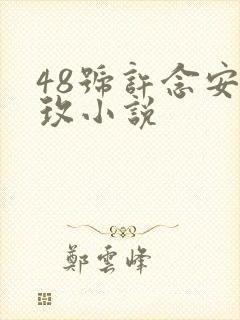 48號許念安
玖小說
鄭雲峰